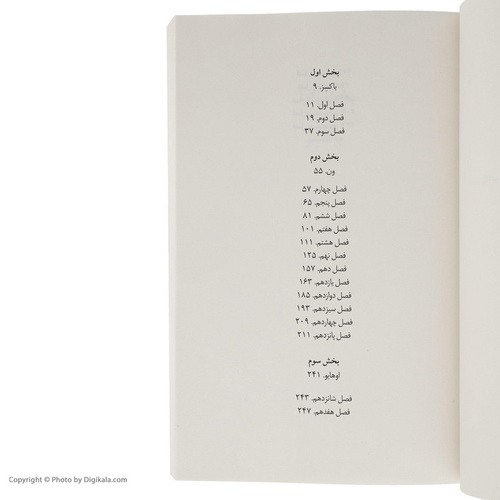 بخش اول
باکسِز. ۹
فصل اول. ۱۱
فصل دوم. ۱۹
فصل سوم. ۳۷
بخش دوم
ون. ۵۵
فصل چهارم. ۵۷
فصل پنجم. ۶۵
فصل ششم. ۸۱
فصل هفتم. ۱۰۱
فصل هشتم. ۱۱۱
فصل نهم. ۱۲۵
فصل دهم. ۱۵۷
فصل یازدهم. ۱۶۳
فصل دوازدهم. ۱۸۵
فصل سیزدهم. ۱۹۳
فصل چهاردهم. ۲۰۹
فصل پانزدهم. ۲۱۱
بخش سوم
اوهایو. ۲۴۱
فصل شانزدهم. ۲۴۳
فصل هفدهم. ۲۴۷
Copyright © Photo by Digikala.com